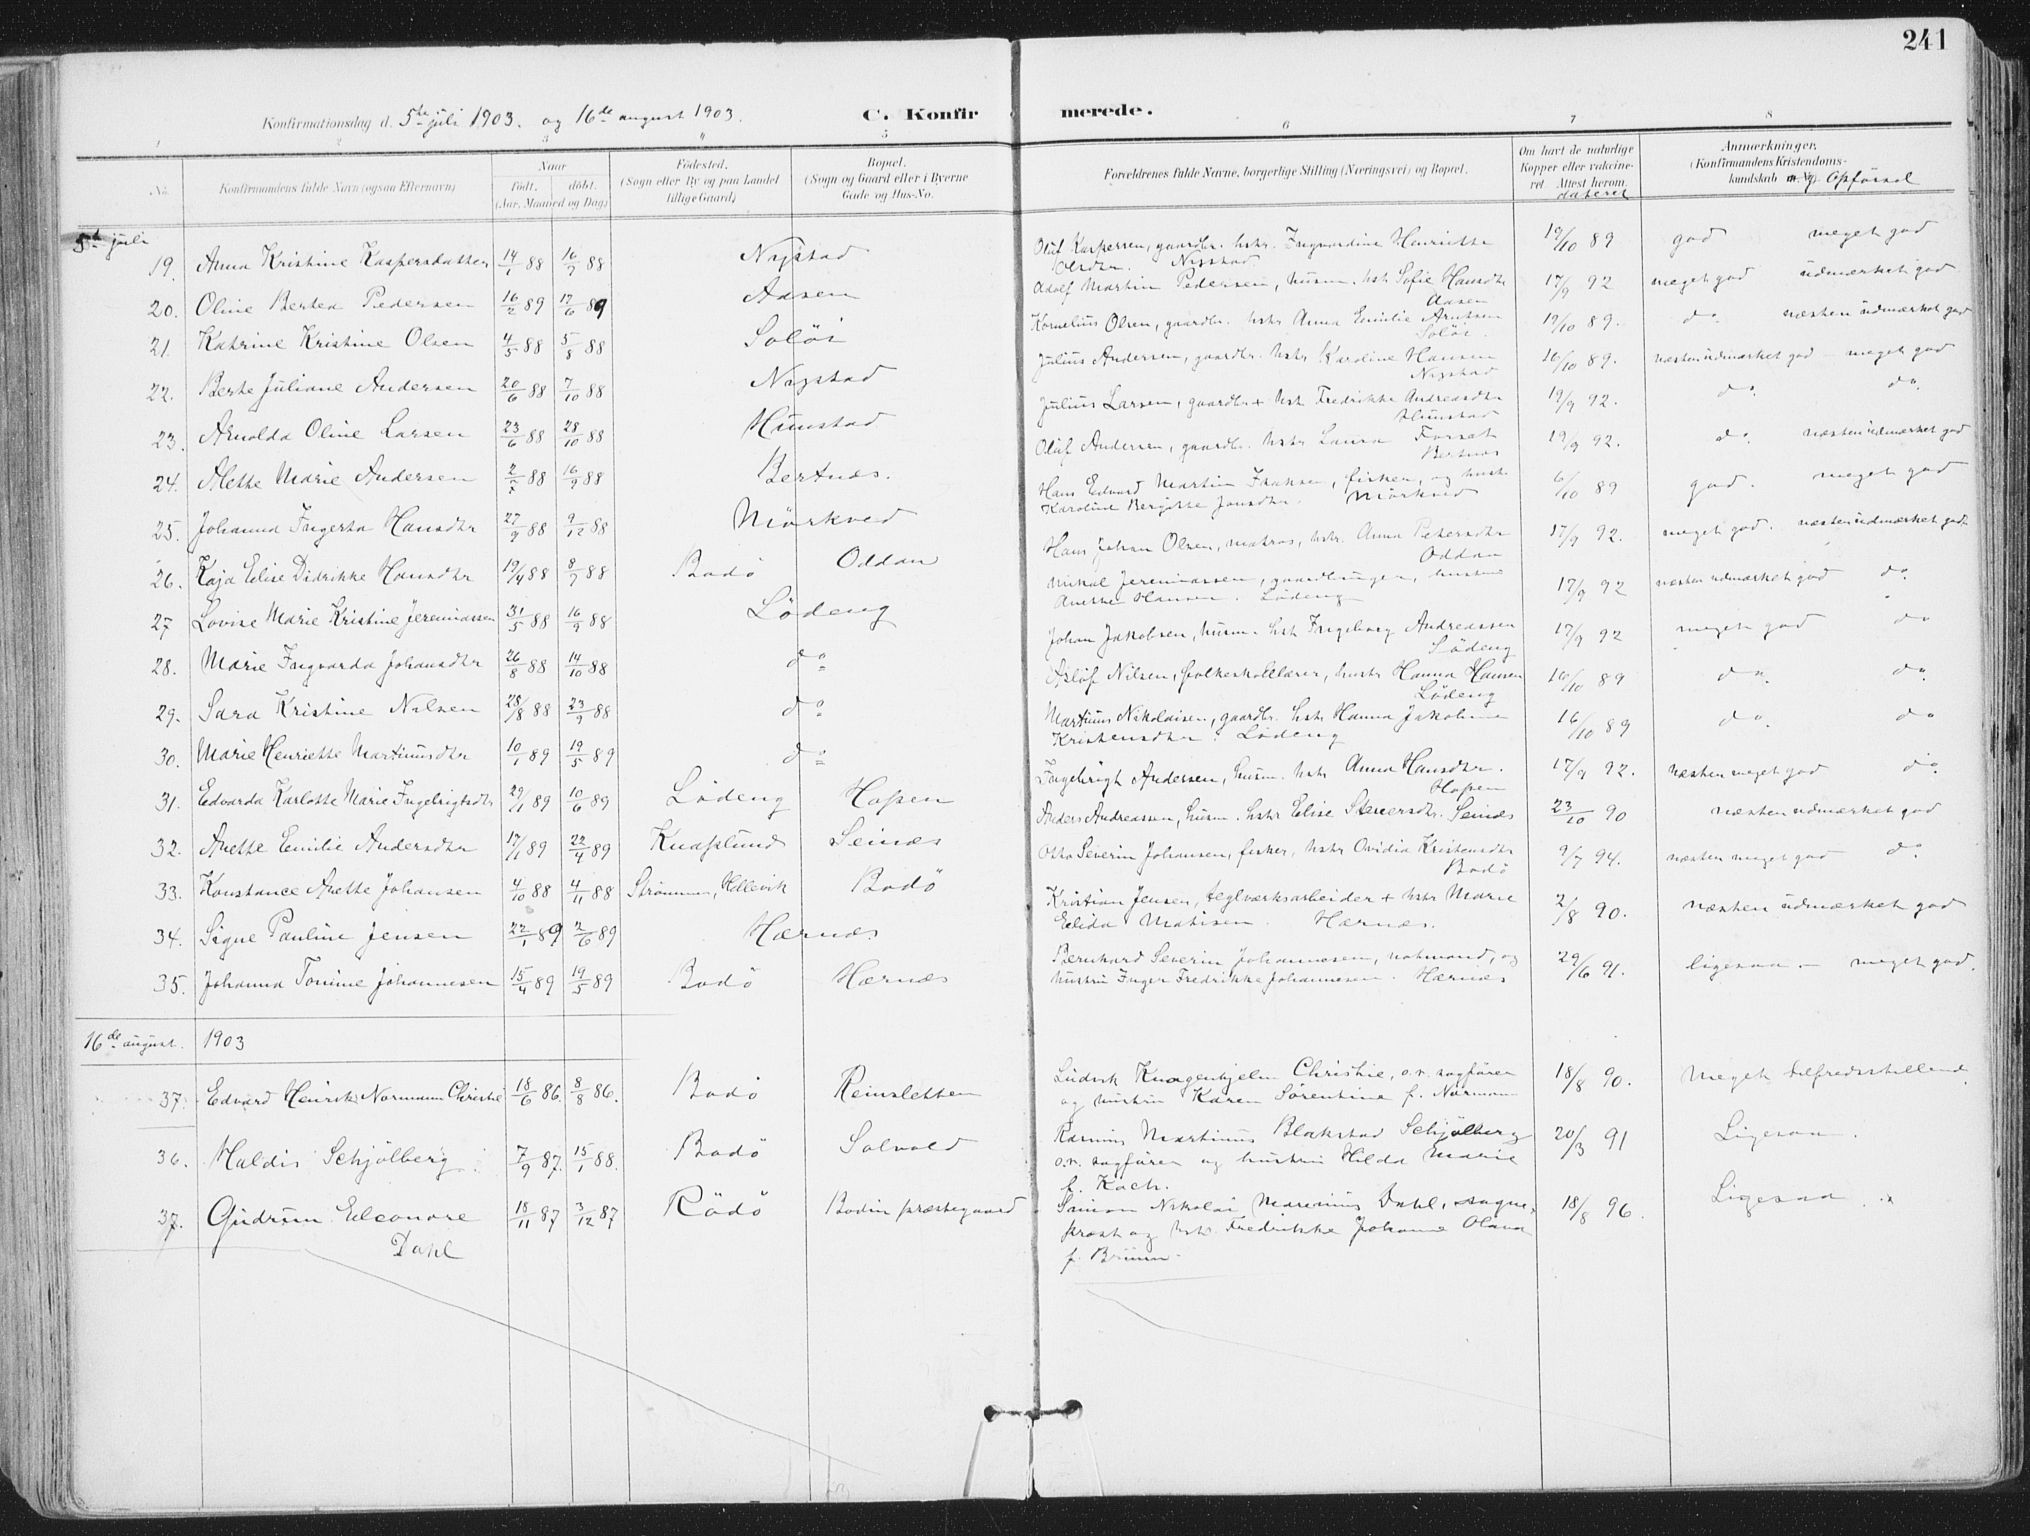 241
Konfirmationsdag d. 5te juli 1903. og 16de august 1903. C. Konfirmerede.
1 2 3 4 5 6 7 8
No. Konfirmandens fulde Navn (ogsaa Efternavn) Naar født. døbt. (Aar, Maaned og Dag) Fødested. (Sogn eller By og paa Landet tillige Gaard) Bopæl. (Sogn og Gaard eller i Byerne Gade og Hus-No. Forældrenes fulde Navne, borgerlige Stilling (Næringsvei) og Bopæl. Om havt de naturlige Kopper eller vakcineret. Attest herom dateret Anmærkninger. (Konfirmandens Kristendomskundskab og Opførsel
5te juli
19. Anna Kristine Kaspersdatter 14/1 88 16/9 88 Nystad Oluf Kaspersen, gaardbr. hstr. Ingvardine Henriette 19/10 89 god meget god
Olsdtr. Nystad
20. Oline Bertea Pedersen 16/2 89 17/6 89 Aasen Adolf Martin Pedersen, husm. hst Sofie Hansdtr 17/9 92 meget god udmærket god
Aasen
21. Katrine Kristine Olsen 4/5 88 5/8 88 Soløi Kornelius Olsen, gaardbr. hstr Anna Emilie Arntsen 19/10 89. do næsten udmærket god
Soløi.
22. Berte Juliane Andersen 20/6 88 7/10 88 Nystad Julius Andersen, gaardbr. hstr Karoline Hansen 16/10 89. næsten udmærket god – meget god
Nystad
23. Arnolda Oline Larsen 23/6 88 28/10 88 Hunstad Julius Larsen, gaardbr + hst Fredrikke Andreasdtr 19/9 92. do do
Hunstad
24. Alette Marie Andersen 2/7 88 16/9 88 Bertnes. Oluf Andersen, gaardbr. hstr Laura Forsat 19/9 92. do næsten udmærket god
Bertnes
25. Johanna Ingerta Hansdtr 27/9 88 9/12 88 Mørkved Hans Edvard Martin Isaksen, fisker, og hustr 6/10 89 god. meget god
Karoline Bergitte Jonsdtr. Mørkved
26. Kaja Elise Didrikke Hansdtr 19/4 88 8/7 88 Bodø Oddan Hans Johan Olsen, matros, hstr. Anna Petersdtr 17/9 92. meget god. næsten udmærket god
Oddan
27 Lovise Marie Kristine Jeremiassen 31/5 88 16/9 88 Lødeng Mikal Jeremiassen, gaardbruger, hustru 17/9 92 næsten udmærket god do
Anette Hansen. Lødeng
28. Marie Ingvarda Johansdtr 26/8 88 14/10 88 do Johan Jakobsen, husm. hst Ingeborg Andreassen 17/9 92 meget god do
Lødeng
29. Sara Kristine Nilsen 28/8 88 23/9 88 do Asløf Nilsen, folkeskolelærer, hustr Hanna Hansen 16/10 89 do. do.
Lødeng
30. Marie Henriette Martinusdtr 10/1 89 19/5 89 do Martinus Nikolaisen, gaardbr. hstr Hanna Jakobine 16/10 89 do. do
Kristensdtr. Lødeng
31. Edvarda Karlotte Marie Ingebrigtsdtr 29/1 89 10/6 89 Lødeng Hopen Ingebrigt Andersen, husm. hstr Anna Hansdtr. 17/9 92. næsten meget god do
Hopen
32. Anette Emilie Andersdtr 17/1 89 22/4 89 Knaplund Seines Anders Andreassen, husm. hstr Elise Steversdtr. Seines 23/10 90 næsten udmærket god
33. Konstance Anette Johansen 4/10 88 4/11 88 Strømmen, Hellevik Bodø Otto Severin Johansen, fisker, hstr Ovidia Kristensdtr 9/7 94. næsten meget god do
Bodø
34. Signe Pauline Jensen 22/1 89 2/6 89 Hernes Kristian Jensen, teglværksarbeider + hstr Marie 2/8 90. næsten udmærket god
Elida Matisen. Hernes.
35. Johanna Tomine Johannesen 15/4 89 19/5 89 Bodø Hernes Bernhard Severin Johannesen, notmand, og 29/6 91. ligesaa – meget god.
hustru Inger Fredrikke Johannesen Hernes
16de august. 1903
37. Edvard Henrik Normann Christie 18/6 86. 8/8 86. Bodø Reinsletten Ludvik Knagenhjelm Christie, o.r. sagfører 18/8 90. Meget tilfredsstillende.
og hustru Karen Sørentine f. Normann
36. Haldis Schjølberg 7/9 87. 15/1 88. Bodø Solvold Rasmus Martinus Blakstad Schjølberg 20/3 91 Ligesaa.
o.r. sagfører og hustru Hilda Marie
f. Koch.
37. Gudrun Eleonore Dahl 18/11 87 3/12 87 Rødø Bodin præstegaard Simon Nikolai Marenius Dahl, sogne- 18/8 96. Ligesaa.
præst og hstr. Fredrikke Johanne Olava
f. Bruun.